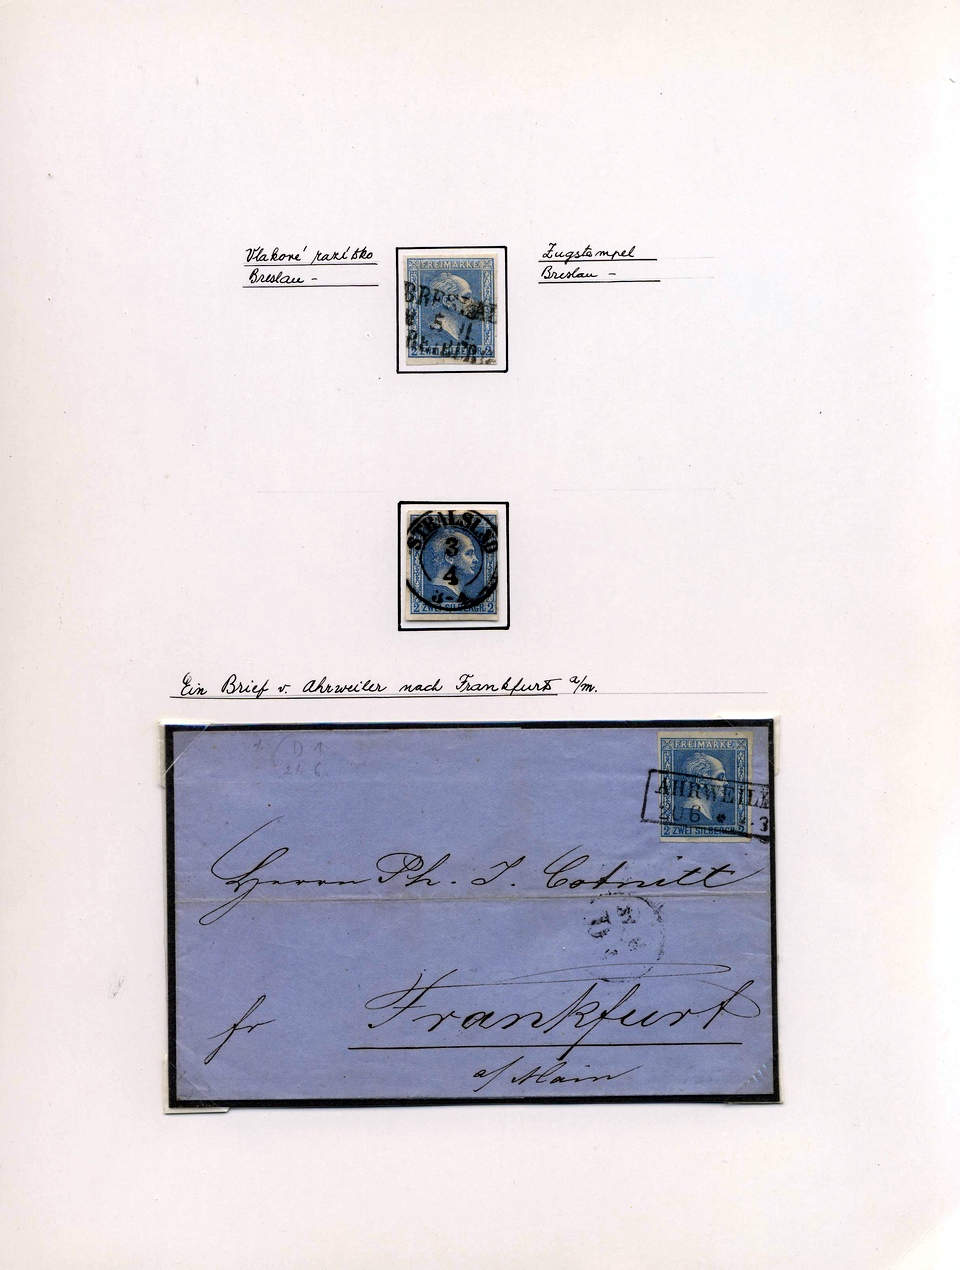 Vlakové razítko
Breslau -
Zugstempel
Breslau -
FREIMARKE
BRESLAU
5 11
2 ZWEI SILBERGR. 2
STRALSUND
3
4
3-4
2 ZWEI SILBERGR. 2
Ein Brief v. Ahrweiler nach Frankfurt a/m.
D 1
21. 6.
FREIMARKE
AHRWEILE
20 6 * 2-3
2 ZWEI SILBERGR. 2
Herrn Ph. J.
fr Frankfurt
a/Main